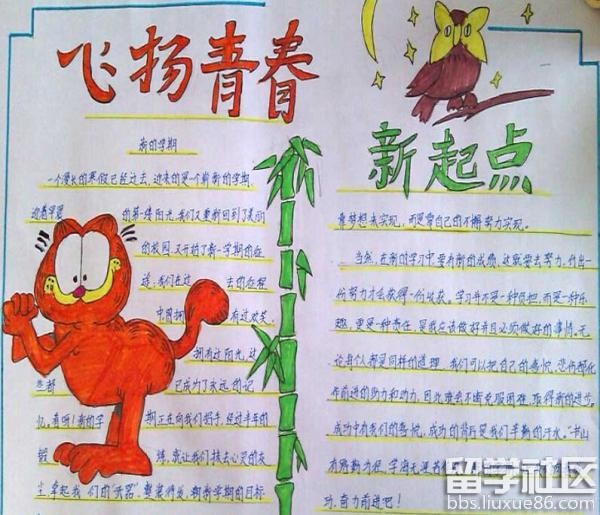 飞扬青春
新的学期
一个漫长的寒假已经过去,迎来的是一个崭新的学期,
迎着早晨的第一缕阳光,我们又重新回到了美丽
的校园,又开始了新一学期的征
途,我们在过去的征程
中曾拥有过欢笑,
拥有过阳光,这
些都已成为了永远的记
忆,看呐!新的学期正在向我们招手,经过半年的
锻炼,就让我们抹去心灵的灰
尘,拿起我们的"武器",整装待发,朝新学期的目标
新起点
靠梦想来实现,而是靠自己的不懈努力实现。
当然,在新的学习中要有新的成绩,这就要去努力,付出一
份努力才会获得一份收获,学习并不是一种负担,而是一种乐
趣,更是一种责任,是我应该做好并且必须做好的事情,无
论每个人都是同样的道理,我们可以把自己的喜悦,悲伤都化
作前进的动力和动力,因此要去不断克服困难,取得新的进步,
成功中有我们的喜悦,成功的背后是我们辛勤的汗水,"书山
有路勤为径,学海无涯
功,奋力前进吧!
留学社区
bbs.liuxue86.com